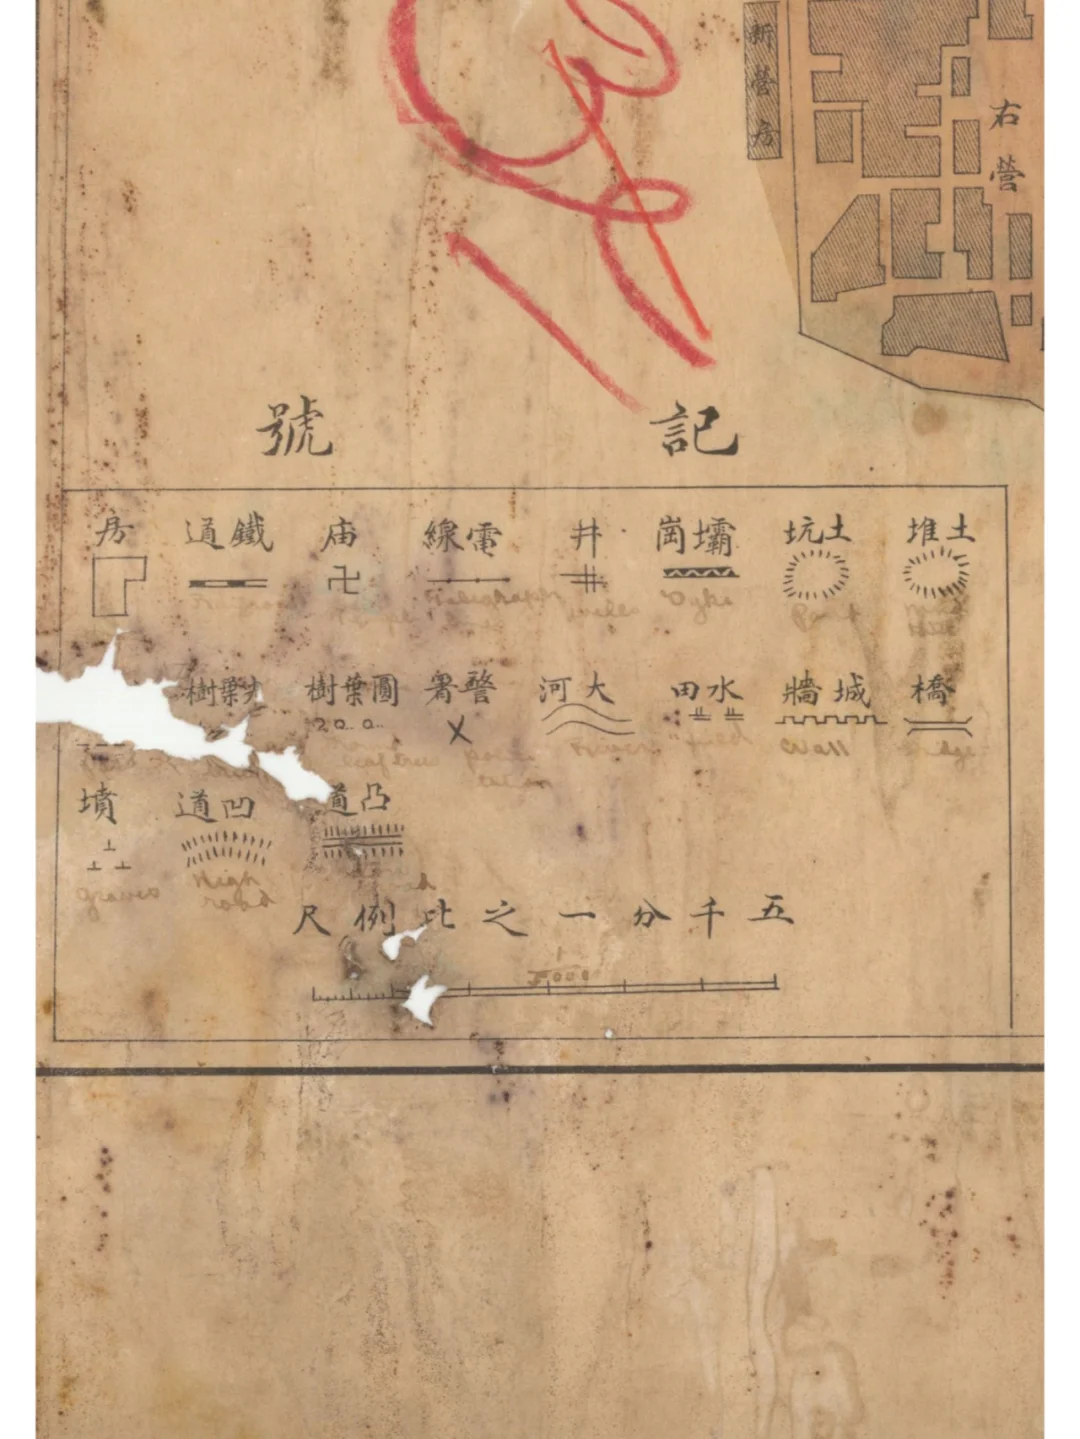 新營房
右營
記號
土堆 土坑 壩崗 井 電線 庙 鐵道 房
Telegraph Wells Dyke
橋 城牆 水田 大河 警署 圓葉樹 尖葉樹
Wall field River leaf tree
凸道 凹道 墳
High road
graves
五千分一之比例尺
1
5000